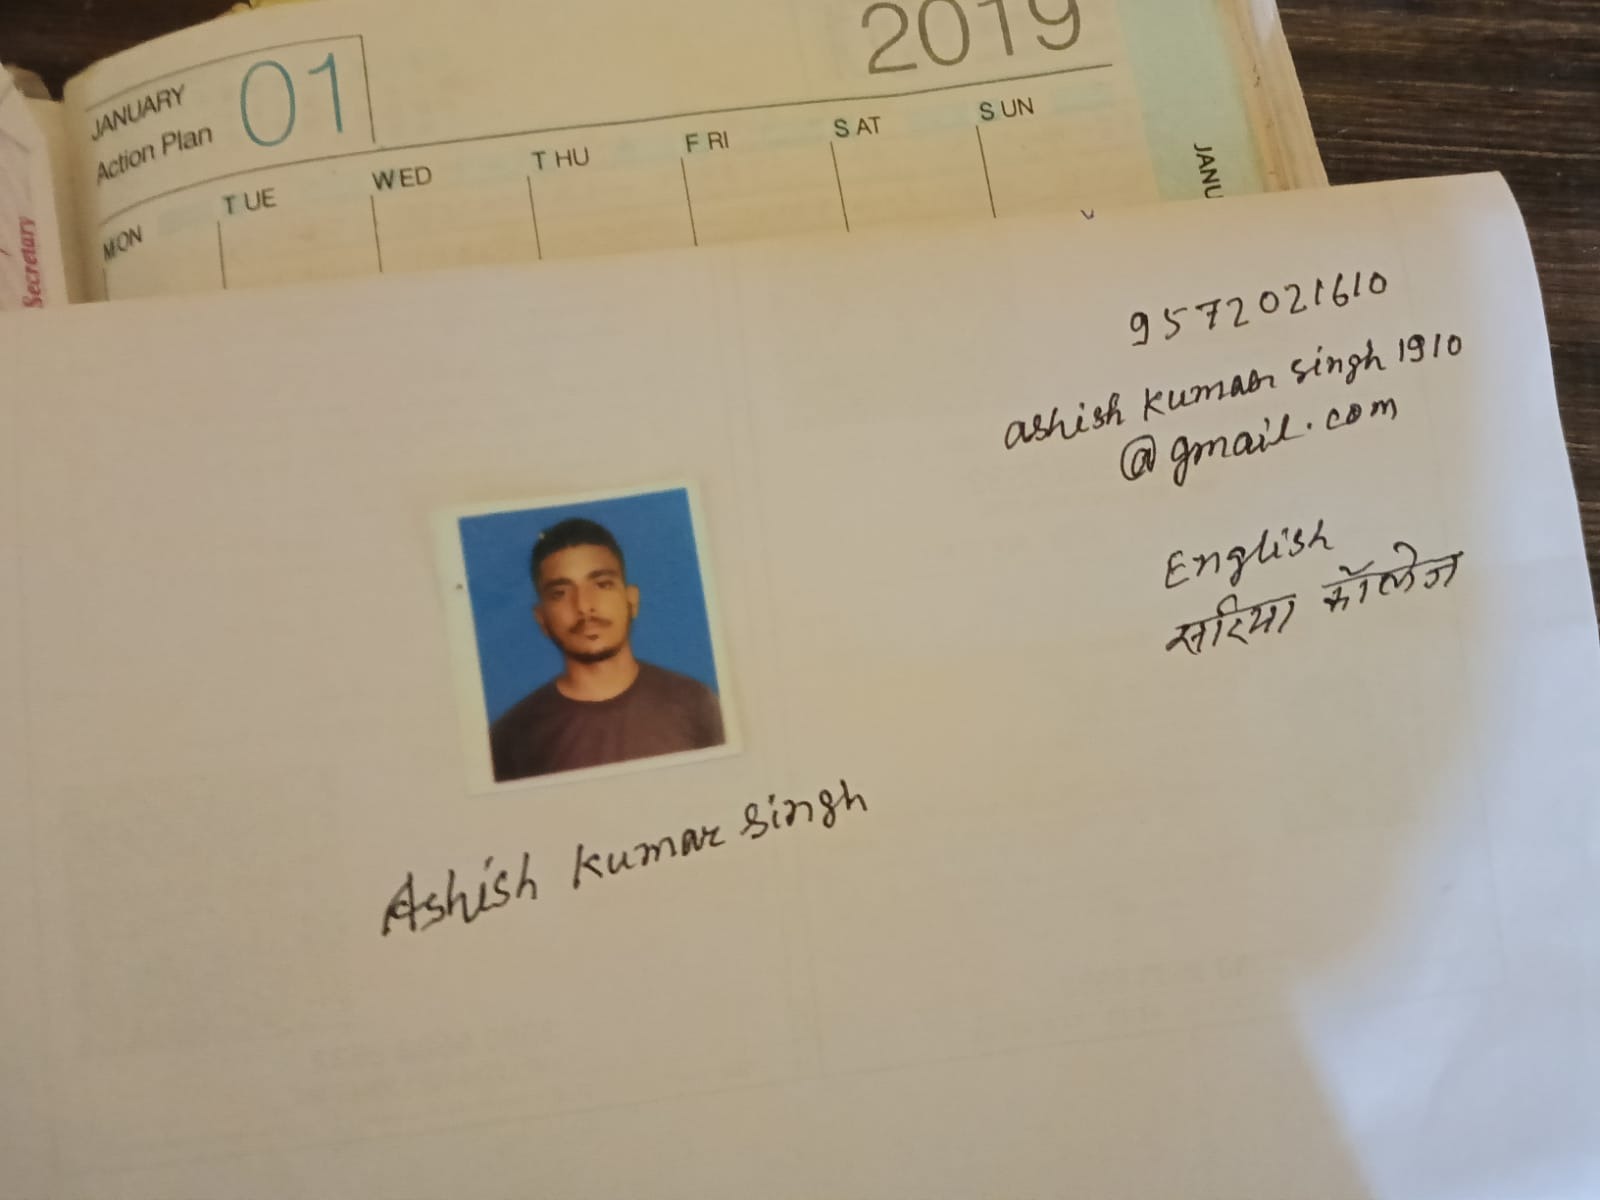 JANUARY
Action Plan
01
2019
MON
TUE
WED
THU
FRI
SAT
SUN
JANU
Secretary
9572021610
ashish kumar singh 1910
@gmail.com
English
सरिया कॉलेज
Ashish kumar singh